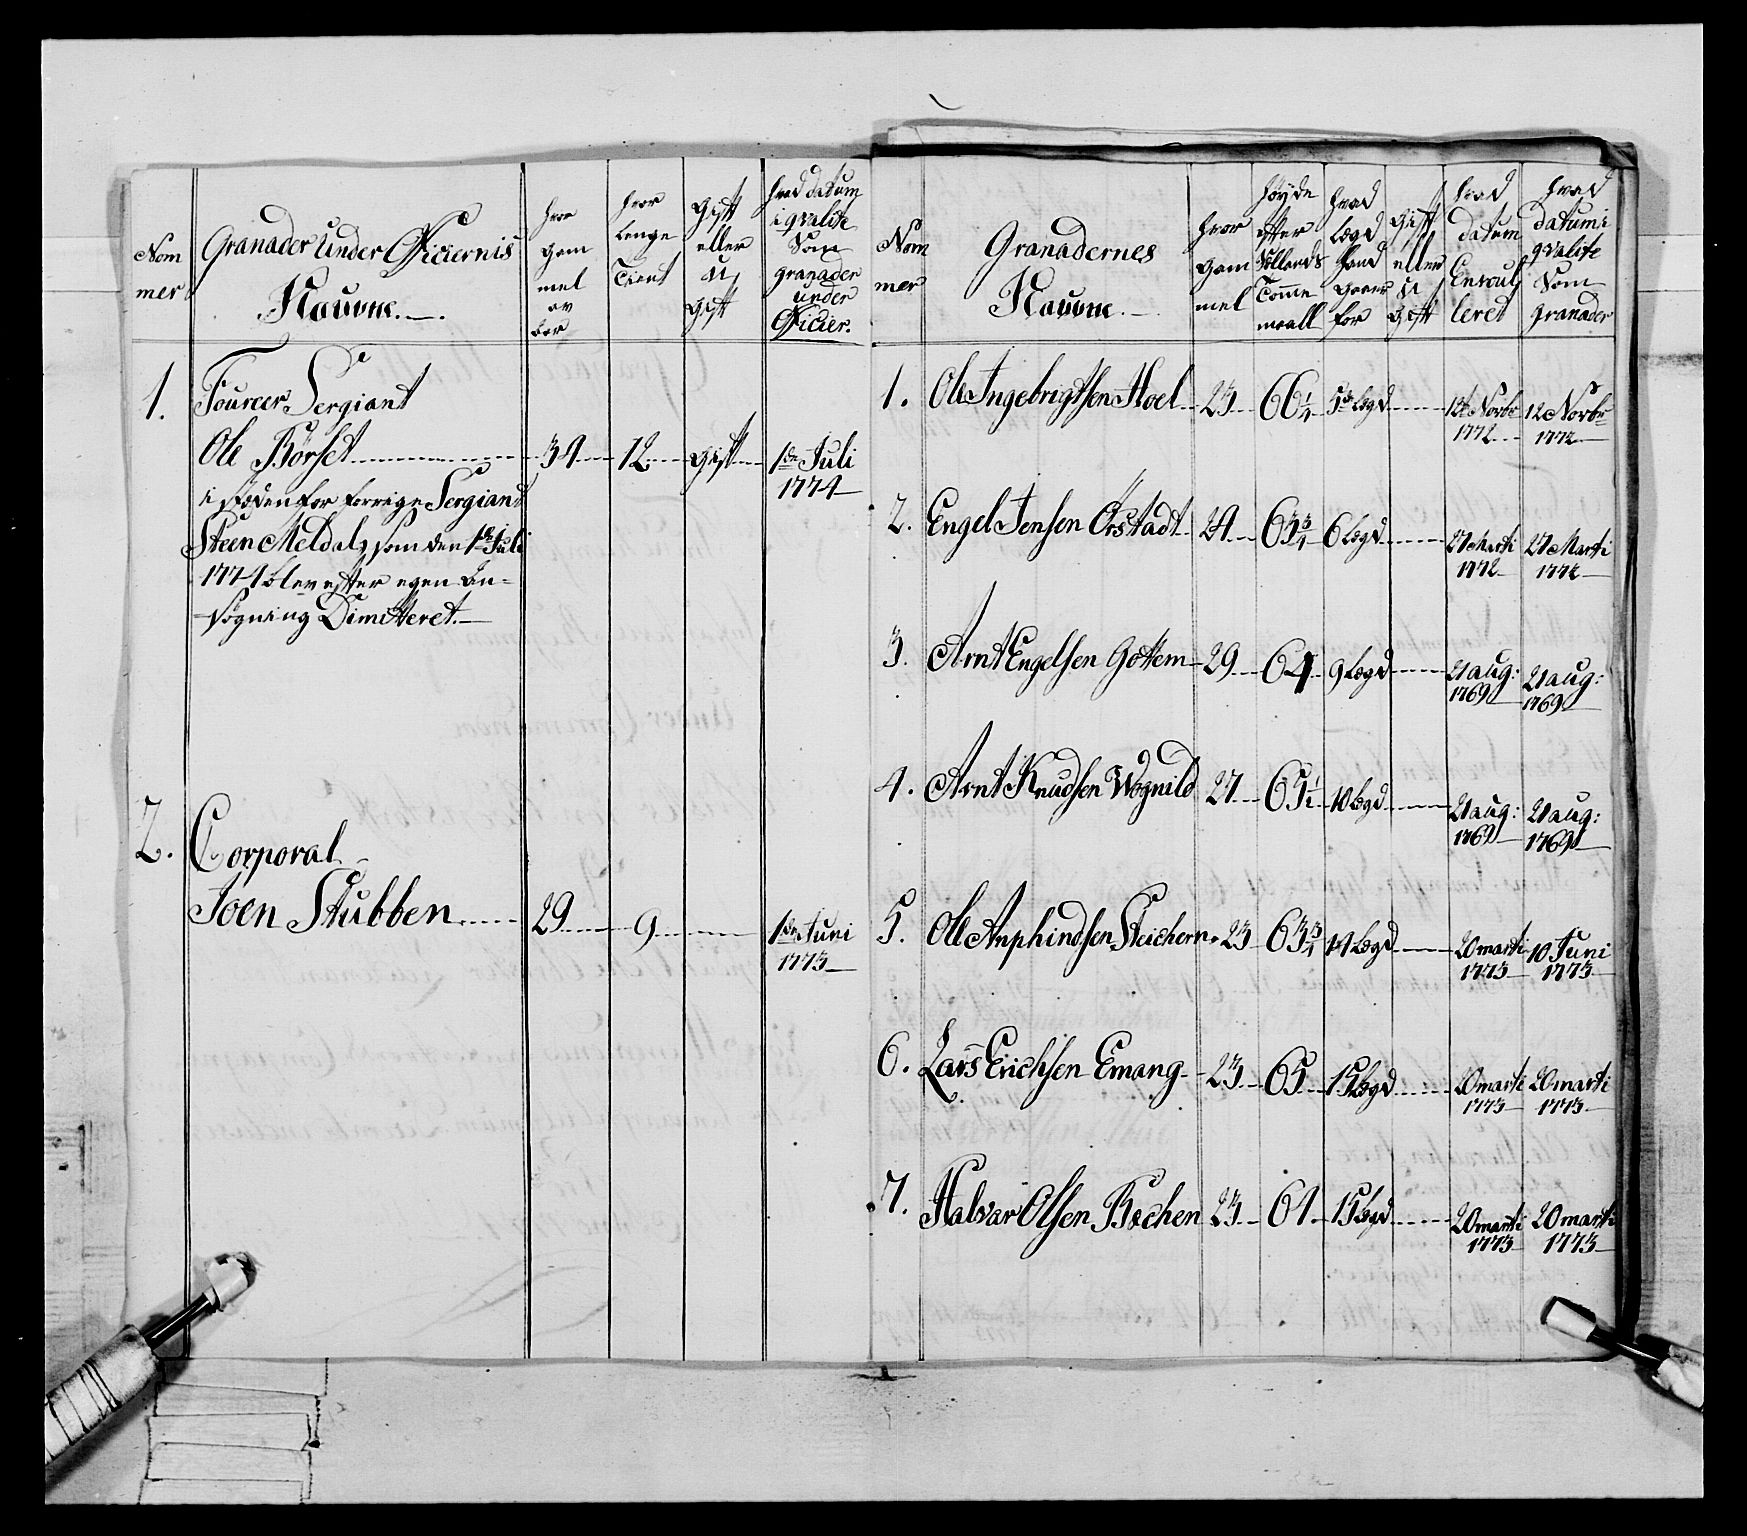 Nom
mer
Granader Under Officiernis
Naune.
hvor
gam
mel
av
hvor
lenge
Tient
Gift
eller
U
Gift
hvad datum
i qvalite
Som
granader
under
Officier.
1. Fourer Sergiant
Ole Börset 34 12 gift 1de Juli
1774
i stæden for forrige Sergiant
Steen Meldal, som den 1de Juli
1774 blev efter egen An-
søgning Dimitteret.
2. Corporal
Joen Stubben 29 9 1de Juni
1773
Nom
mer
Granadernes
Naune.
hvor
gam
mel
höyde
efter
Tomme
maall
hvad
Legd
hand
for
Gift
eller
U
Gift
hvad
datum
Enroul
leret
hvad
datum i
qvalite
Som
Granader
1. Ole Ingebrigtsen Hoel 23 66 1/4 5te Legd 12te Novbr 12 Novbr
1772 1772
2. Engel Jensen Örstadt 24 63 3/4 6 Legd 27 Marti 27 Marti
1772 1772
3. Arnt Engelsen Gottem 29 64 9 Legd 21 aug: 21 aug:
1769 1769
4. Arnt Knudsen Wognild 27 65 1/2 10 Legd 21 aug: 21 aug:
1769 1769
5. Ole Anphindsen Steichern 23 63 3/4 14 Legd 20 marti 10 Juni
1773 1773
6. Lars Erichsen Emang 23 65 15 Legd 20 marti 20 marti
1773 1773
7. Halvar Olsen Bechen 23 61 15 Legd 20 marti 20 marti
1773 1773